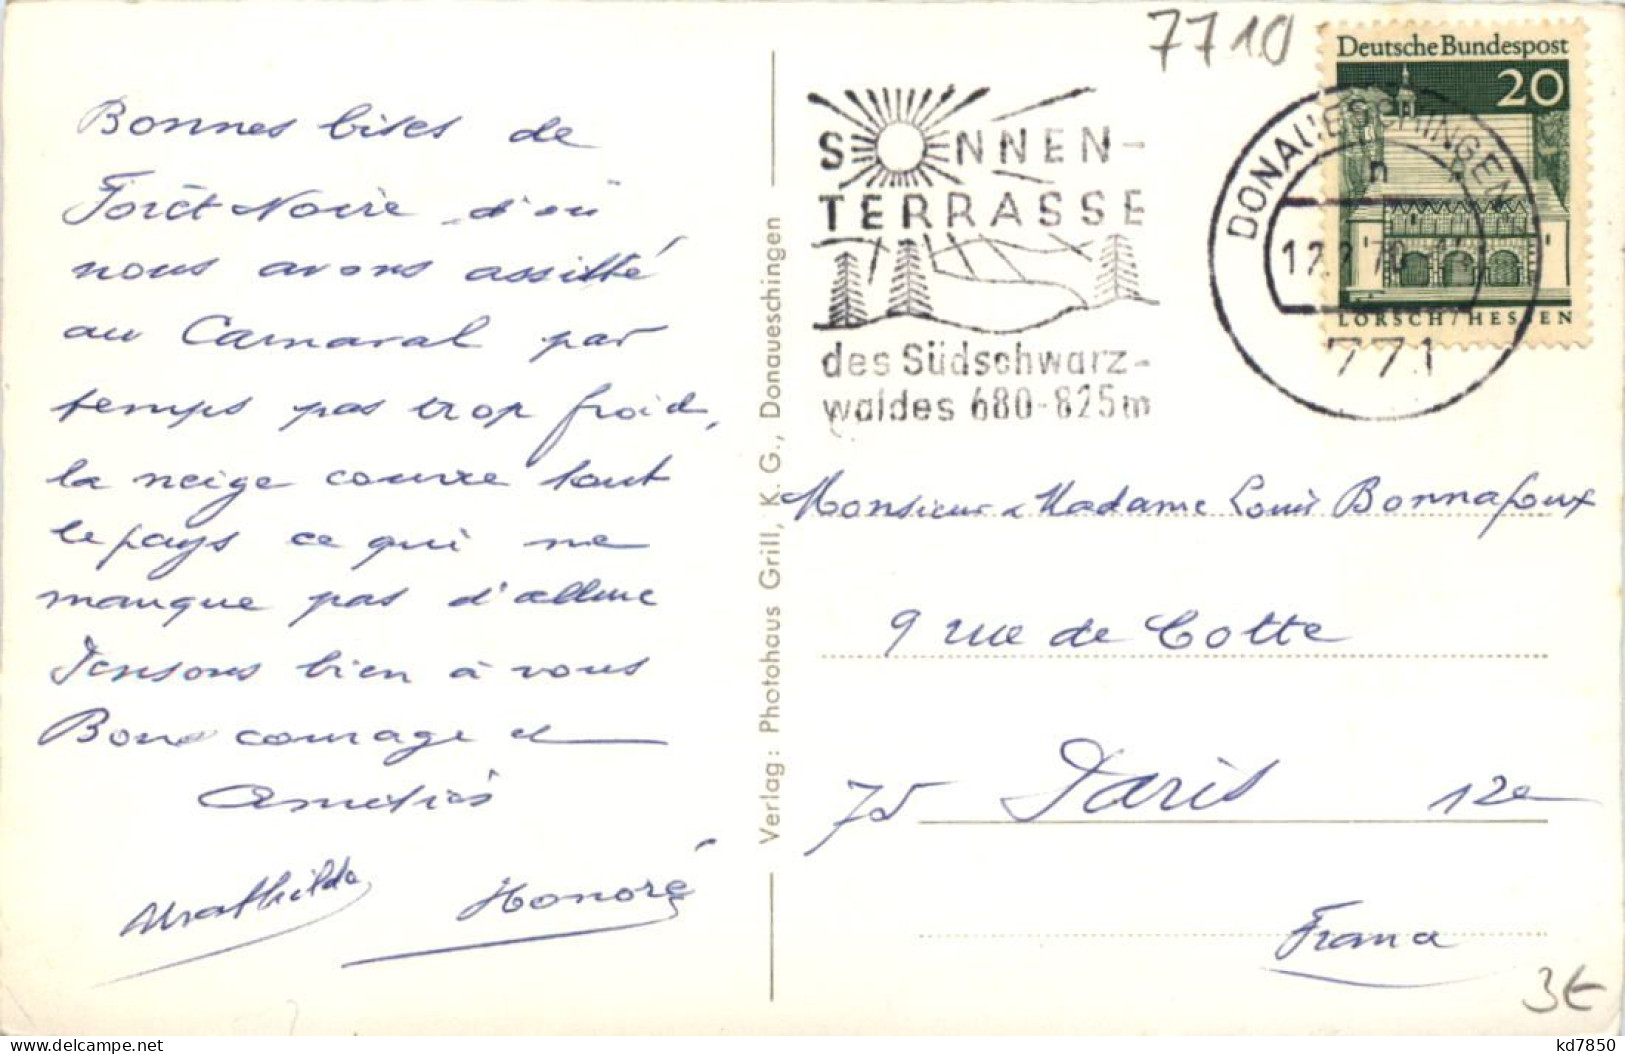 Bonnes bises de
Forêt Noire d'où
nous avons assisté
au Carnaval par
temps pas trop froid,
la neige couvre tout
le pays ce qui ne
manque pas d'allure
Pensons bien à vous
Bon courage et
Amitiés
Mathilda
Honoré
Verlag: Photohaus Grill, K. G., Donaueschingen
7710
SONNEN-
TERRASSE
des Südschwarz-
waldes 680-825m
DONAUESCHINGEN
n
771
Deutsche Bundespost
20
LORSCH/HESSEN
Monsieur & Madame Louis Bonnafoux
9 rue de Cotte
75 Paris 12e
France
3€
delcampe.net
kd7850